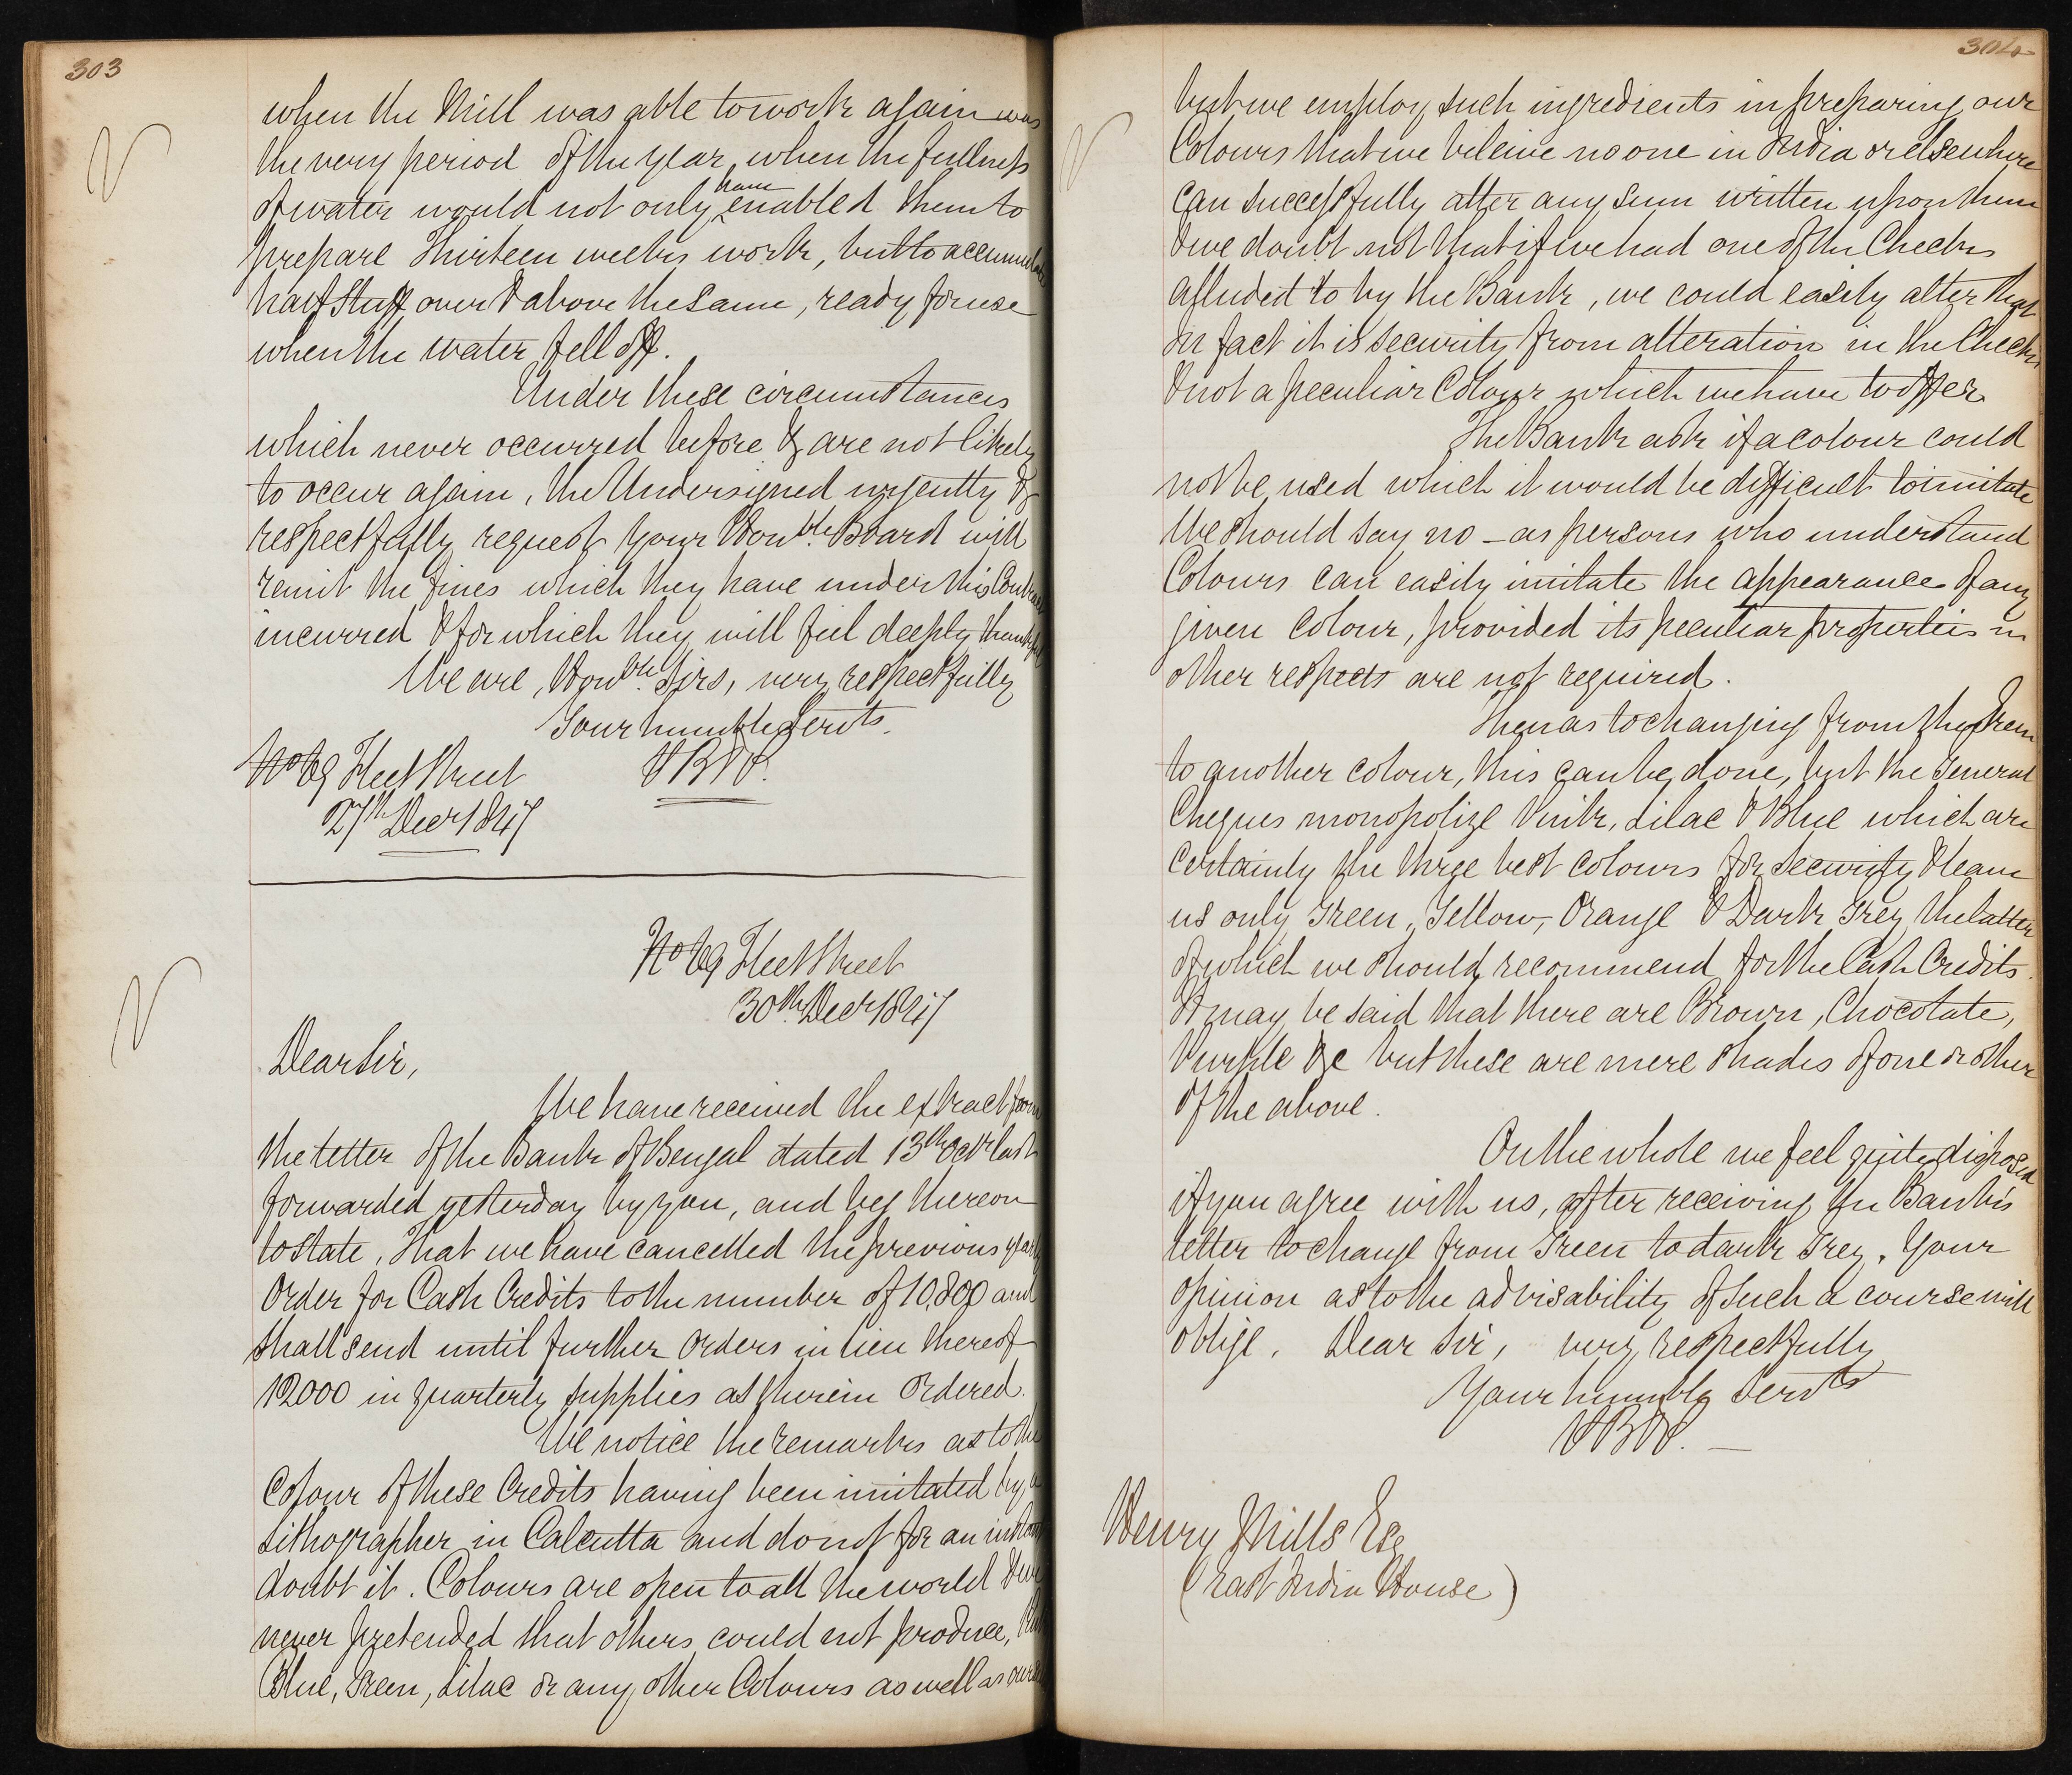 303
when the Mill was able to work again was
the very period of the year, when the fullness
have
of water would not only enabled them to
prepare Thirteen weeks work, but to accumulate
half Stuff over & above the same, ready for use
when the water fell off.
Under these circumstances
which never occurred before & are not likely
to occur again, the Undersigned urgently &
respectfully request your Honble. Board will
remit the fines which they have under this Contract
incurred & for which they will feel deeply thankful
We are, Honble. Sirs, very respectfully
Your humble Servts.
No 69 Fleet Street
27th Decr 1847
No 69 Fleet Street
30th Decr 1847
Dear Sir,
We have received the extract from
the letter of the Bank of Bengal dated 13th Octr last
forwarded yesterday by you, and beg thereon
to state, That we have cancelled the previous yearly
Order for Cash Credits to the number of 10,800 and
shall send until further Orders in lieu thereof
12000 in quarterly supplies as therein Ordered.
We notice the remarks as to the
Colour of these Credits having been imitated by a
Lithographer in Calcutta and do not for an instant
doubt it. Colours are open to all the world & we
never pretended that others could not produce,
Blue, Green, Lilac or any other Colours as well as
304
but we employ such ingredients in preparing our
Colours that we beleive no one in India or elsewhere
can successfully alter any sum written upon them
& we doubt not that if we had one of the Checks
alluded to by the Bank, we could easily alter that
In fact it is security from alteration in the Checks
& not a peculiar Colour which we have to offer
The Bank ask if a colour could
not be used which it would be difficult to imitate
We should say no – as persons who understand
Colours can easily imitate the appearance of any
given Colour, provided its peculiar properties in
other respects are not required.
Then as to changing from the Green
to another colour, this can be done, but the General
Cheques monopolize Pink, Lilac & Blue which are
certainly the three best colours for security & leave
us only Green, Yellow, Orange & Dark Grey, the latter
of which we should recommend for the Cash Credits.
It may be said that there are Brown, Chocolate,
Purple &c but these are mere shades of one or other
of the above.
On the whole we feel quite disposed
if you agree with us, after receiving the Bank's
letter to change from Green to dark Grey. Your
opinion as to the advisability of such a course will
oblige. Dear Sir, very respectfully
Your humble Servts
Henry Mills Esq
(East India House)